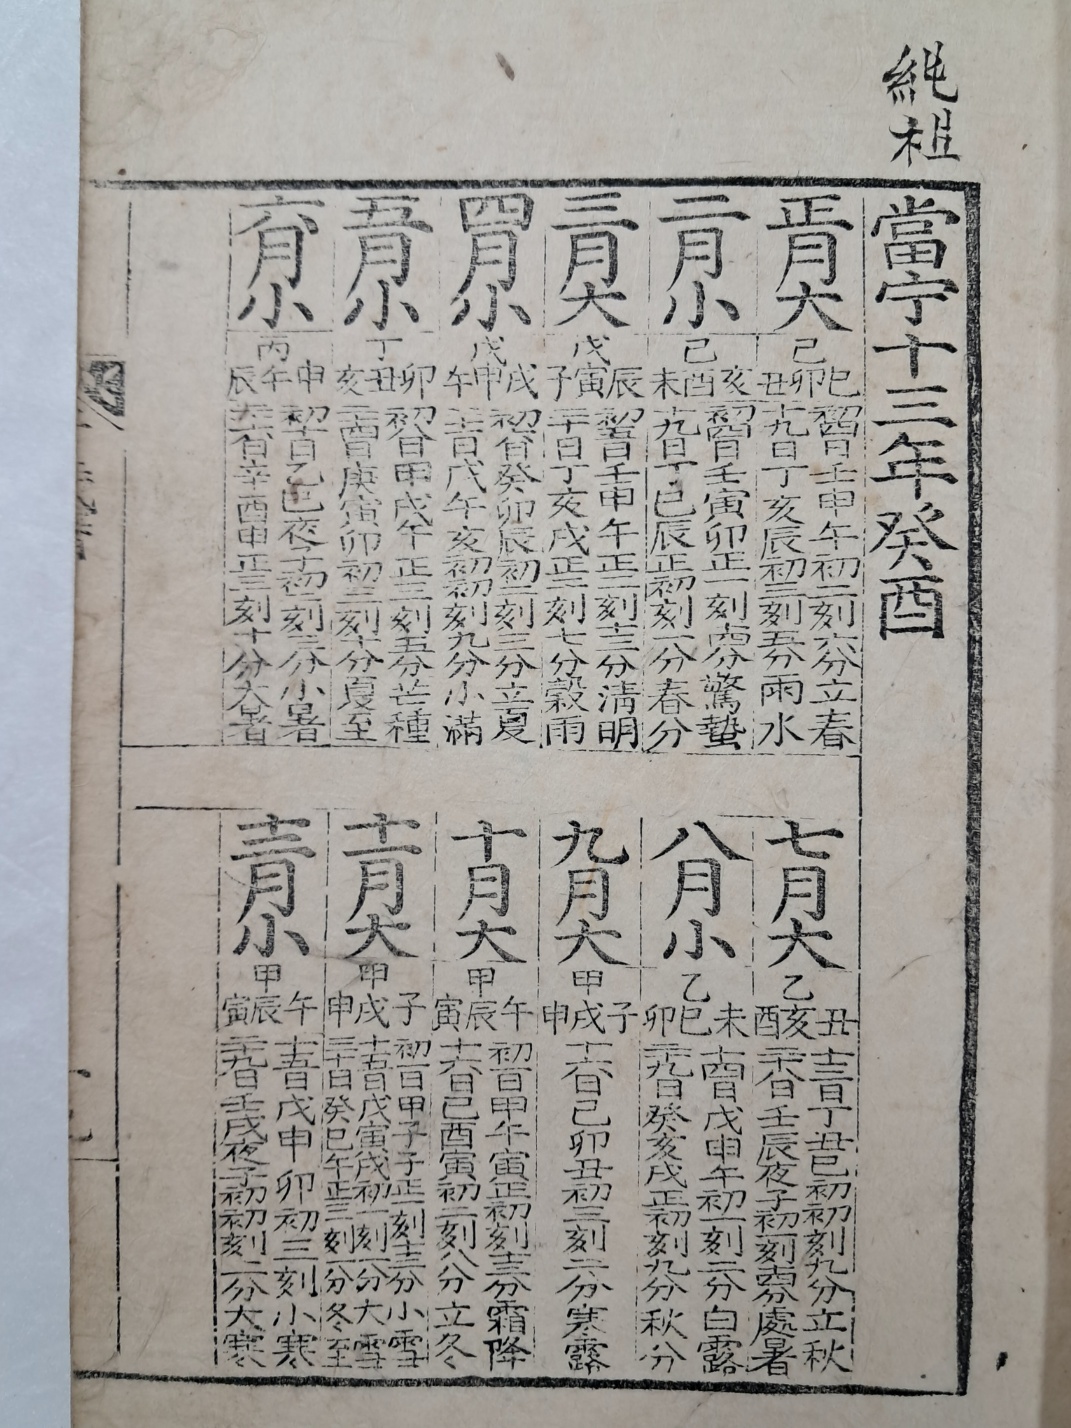 純祖
當宁十三年癸酉
正月大
己 巳卯丑
初四日壬申午初二刻六分立春
十九日丁亥辰初三刻五分雨水
二月小
己 亥酉未
初四日壬寅卯正一刻十四分驚蟄
十九日丁巳辰正初刻一分春分
三月大
戊 辰寅子
初五日壬申午正二刻十三分淸明
二十日丁亥戌正二刻七分穀雨
四月小
戊 戌申午
初六日癸卯辰初二刻三分立夏
二十一日戊午亥初初刻九分小滿
五月小
丁 卯丑亥
初八日甲戌午正三刻五分芒種
二十四日庚寅卯初三刻十分夏至
六月小
丙 申午辰
初十日乙巳夜子初一刻三分小暑
二十六日辛酉申正三刻十分大暑
七月大
乙 丑亥酉
十三日丁丑巳初初刻九分立秋
二十八日壬辰夜子初一刻十四分處暑
八月小
乙 未巳卯
十四日戊申午初一刻二分白露
二十九日癸亥戌正初刻九分秋分
九月大
甲 子戌申
十六日己卯丑初三刻二分寒露
十月大
甲 午辰寅
初一日甲午寅正初刻十三分霜降
十六日己酉寅初二刻八分立冬
十一月大
甲 子戌申
初一日甲子子正一刻十三分小雪
十五日戊寅戌初一刻一分大雪
三十日癸巳午正三刻一分冬至
十二月小
甲 午辰寅
十五日戊申卯初三刻小寒
二十九日壬戌夜子初初刻二分大寒